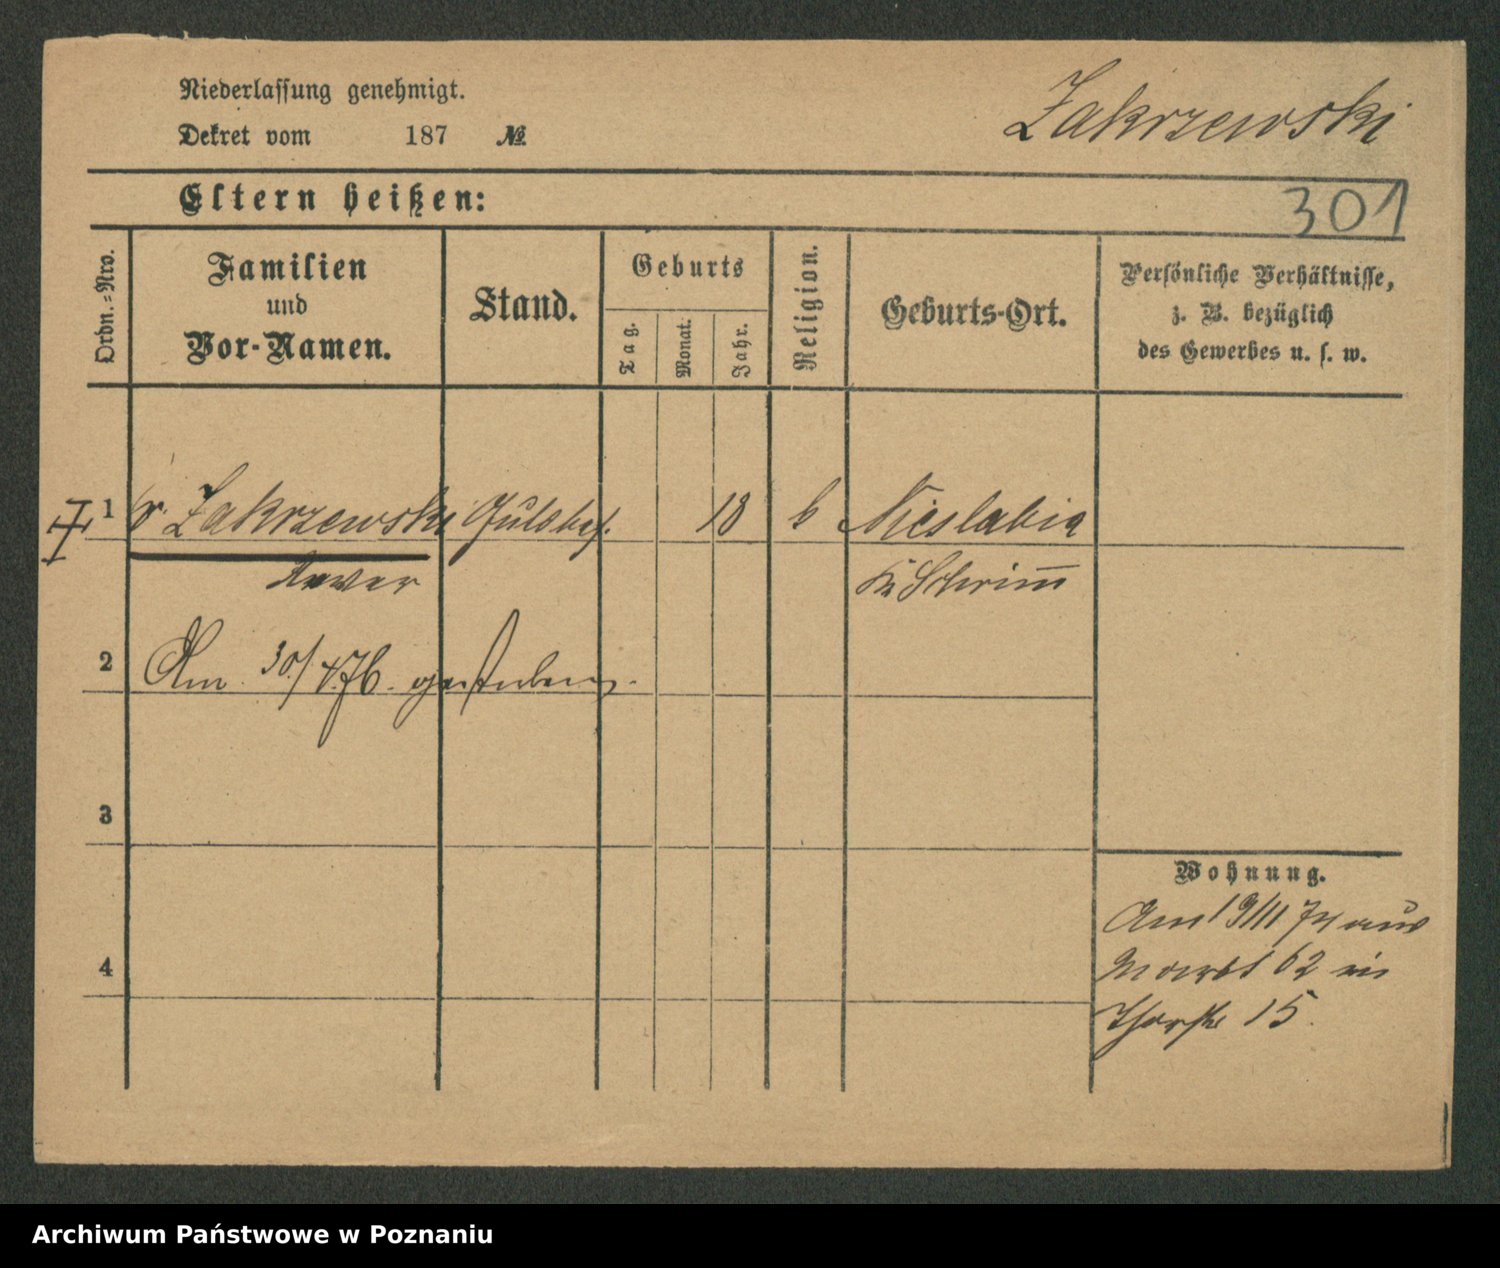 Niederlassung genehmigt.
Dekret vom 187 №
Zakrzewski
Eltern heißen:
301
Ordn.=Nro.
Familien
und
Vor-Namen.
Stand.
Geburts
Tag.
Monat.
Jahr.
Religion.
Geburts-Ort.
Persönliche Verhältnisse,
z. B. bezüglich
des Gewerbes u. s. w.
1 v. Zakrzewski Gutsbes. 18 k Nieslabin
Xaver Kr Schrimm
2 Am 30/4.76. gestorben.
3
4
Wohnung.
Am 19/11 74 aus
Markt 62 in
15.